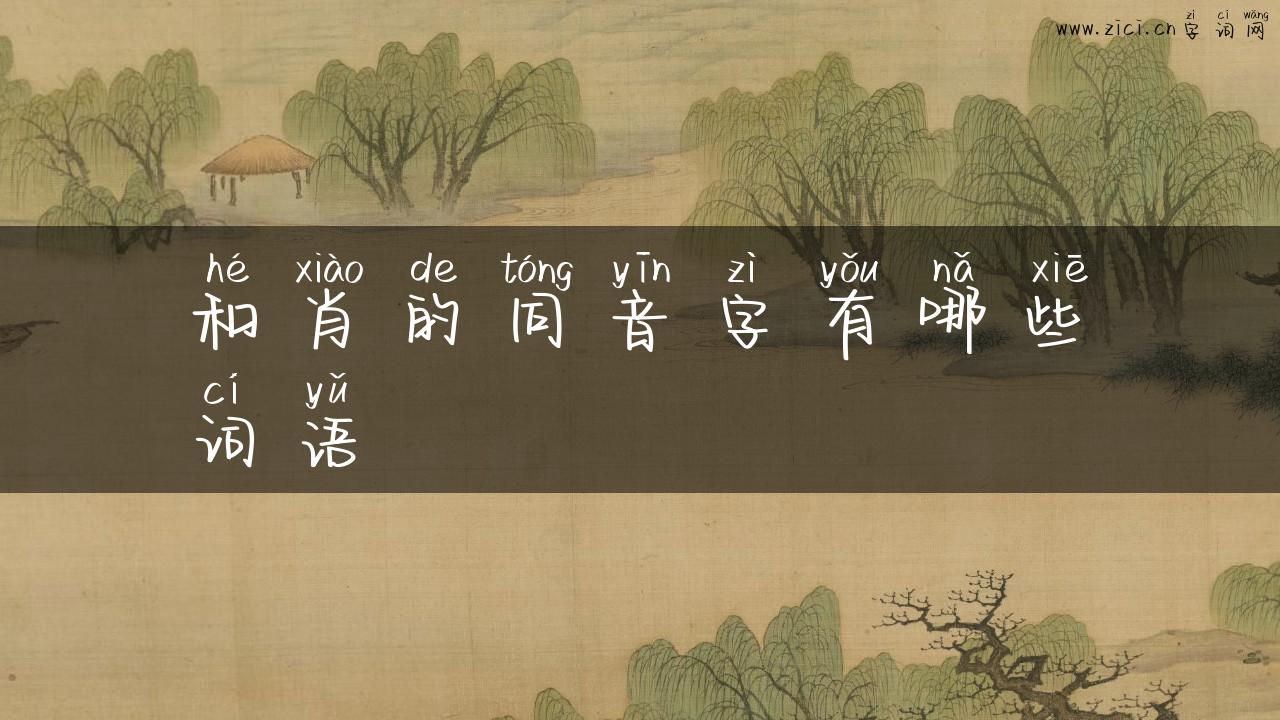 zì cí wǎng
www.zici.cn 字词网
hé xiào de tóng yīn zì yǒu nǎ xiē
和肖的同音字有哪些
cí yǔ
词语